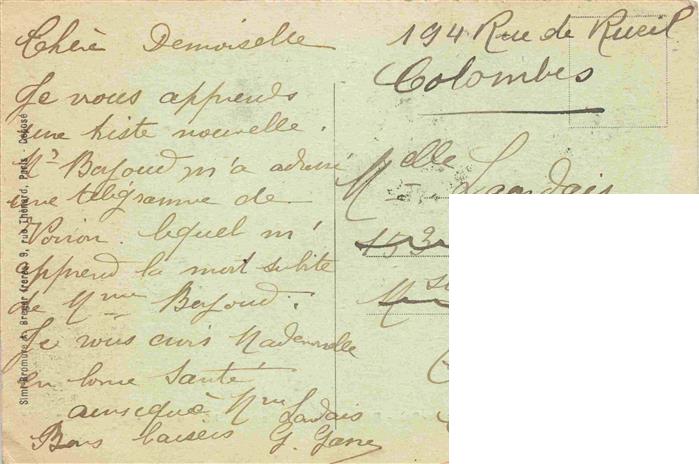 Chère Demoiselle
Je vous apprends
une triste nouvelle.
Mr Bajoud m'a adressé
une télégramme de
Voiron. lequel m'
apprend la mort subite
de Mme Bajoud.
Je vous crois Mademoiselle
en bonne santé
ainsique Mme Landais
Bons baisers G.
194 Rue de Rueil
Colombes
Melle Landais
153
Simi-Bromure A. Breger frères 9, rue Thénard, Paris - Déposé